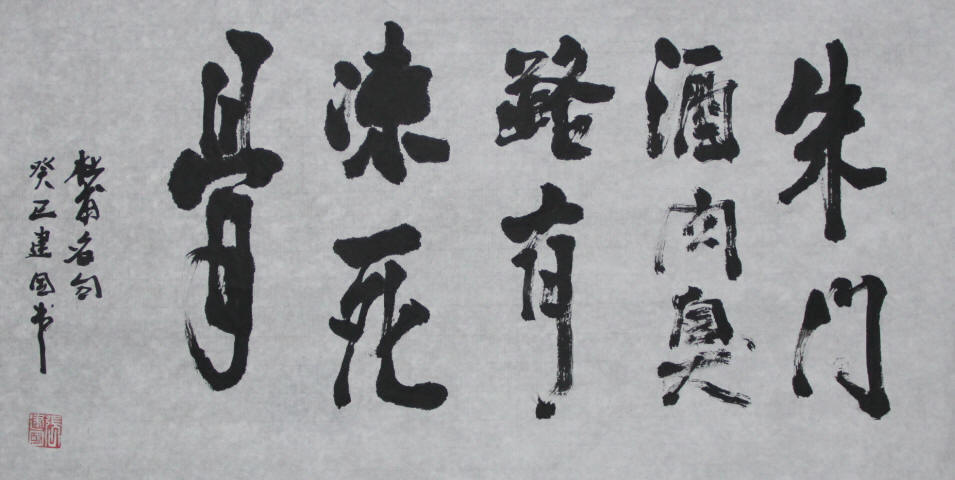 朱门
酒肉臭
路有
凍死
骨
杜甫名句
癸巳建国书